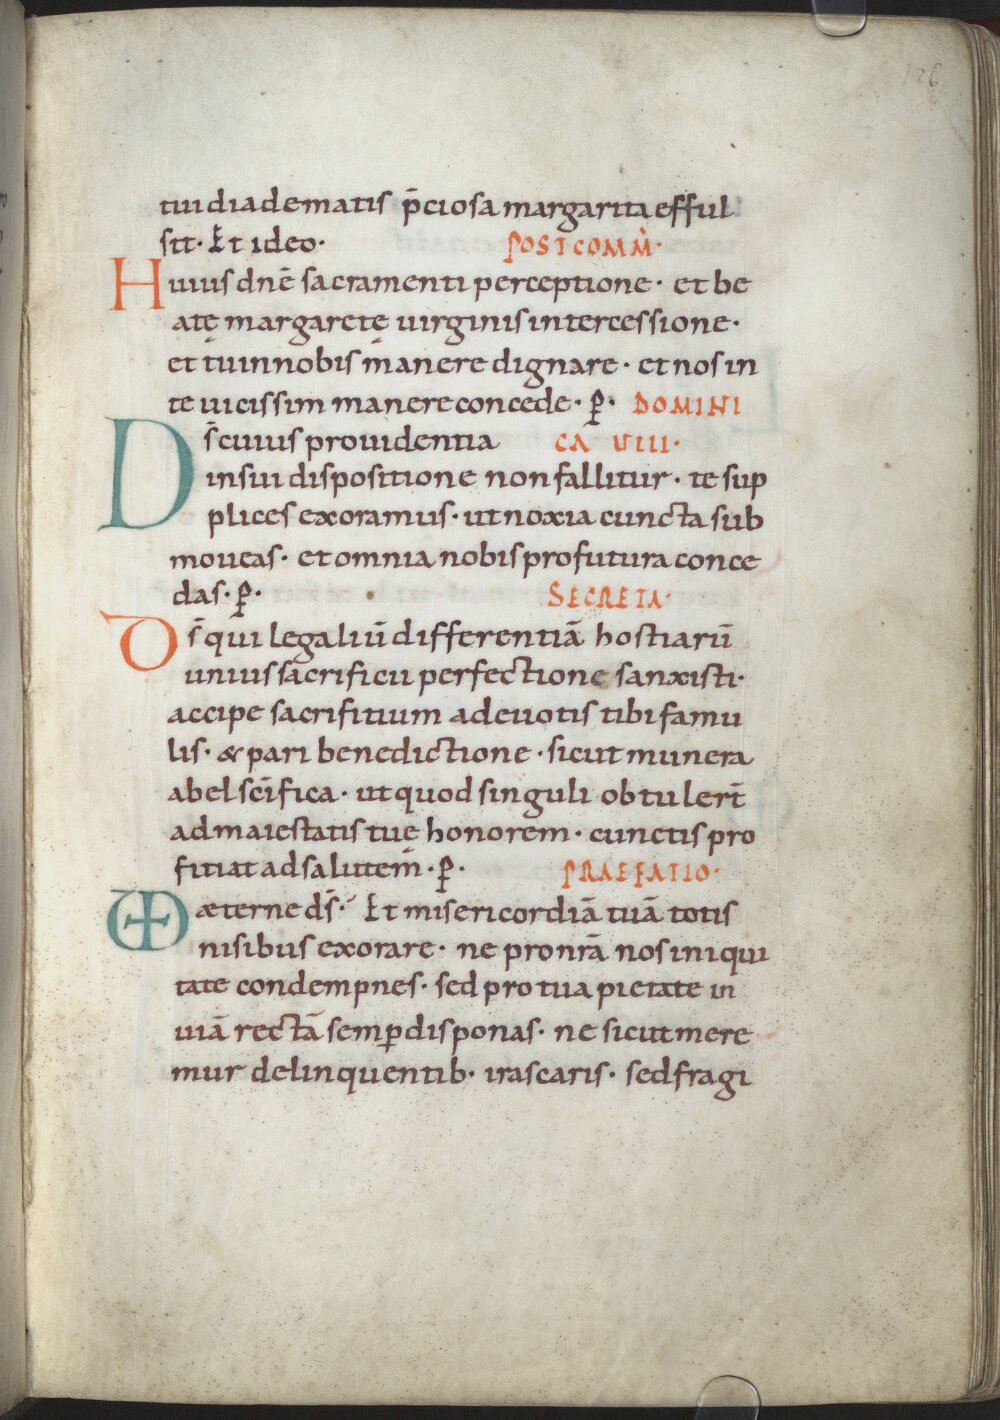 126
tui diadematis p̄ciosa margarita efful
sit· Et ideo· POSTCOMM̄·
Huius dn̄e sacramenti perceptione· et be
atę margaretę uirginis intercessione·
et tu in nobis manere dignare· et nos in
te uicissim manere concede· P̱· DOMINI
Ds̄ cuius prouidentia CA VIII·
in sui dispositione non fallitur· te sup
plices exoramus· ut noxia cuncta sub
moueas· et omnia nobis profutura conce
das· P̱· SECRETA·
Ds̄ qui legaliū differentiā hostiarū
unius sacrificii perfectione sanxisti·
accipe sacrifitium a deuotis tibi famu
lis· & pari benedictione· sicut munera
abel sc̄ifica· ut quod singuli obtuler̄t
ad maiestatis tuę honorem· cunctis pro
fitiat ad salutem· P̱· PRAEFATIO·
æterne ds̄· Et misericordiā tuā totis
nisibus exorare· ne pro nr̄a nos iniqui
tate condempnes· sed pro tua pietate in
uiā rectā semꝑ disponas· ne sicut mere
mur delinquentib· irascaris· sed fragi